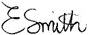 E Smith